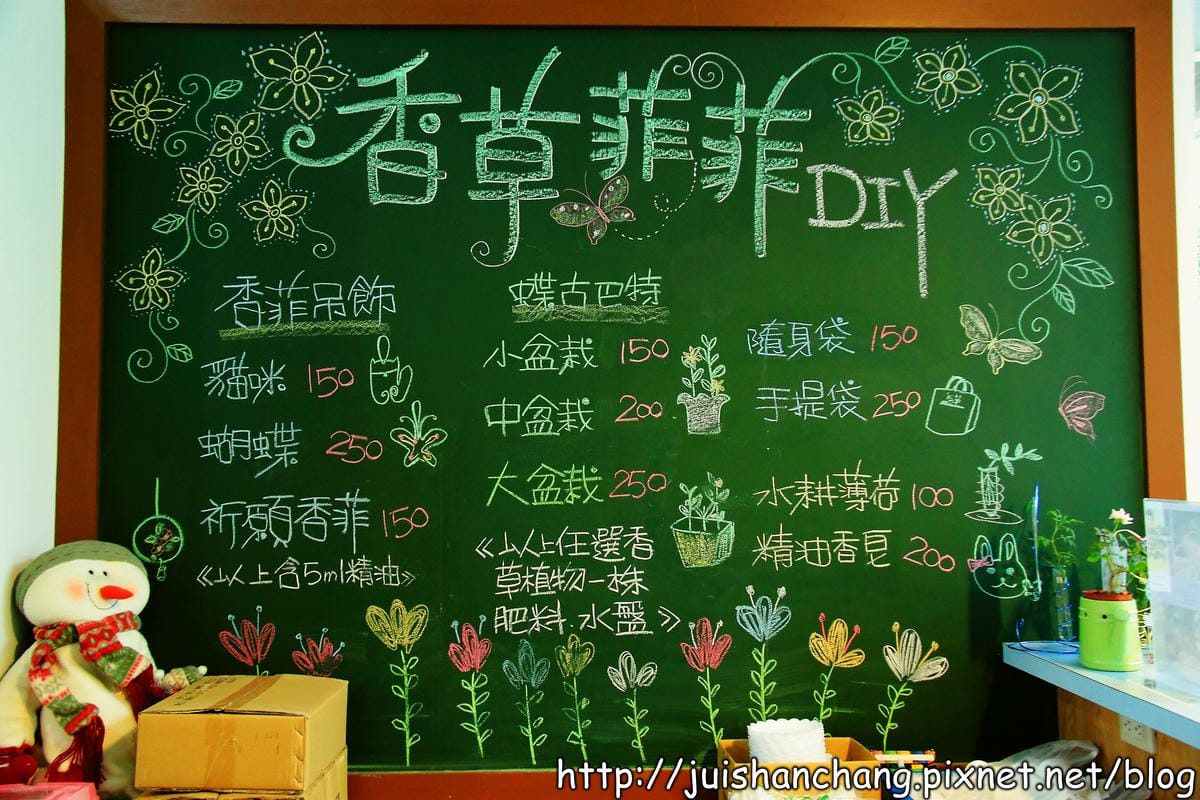 香草菲菲DIY
香菲吊飾
貓咪 150
蝴蝶 250
祈願香菲 150
《以上含5ml精油》
蝶古巴特
小盆栽 150
中盆栽 200
大盆栽 250
《以上任選香
草植物一株
肥料.水盤》
隨身袋 150
手提袋 250
水耕薄荷 100
精油香皂 200
http://juishanchang.pixnet.net/blog